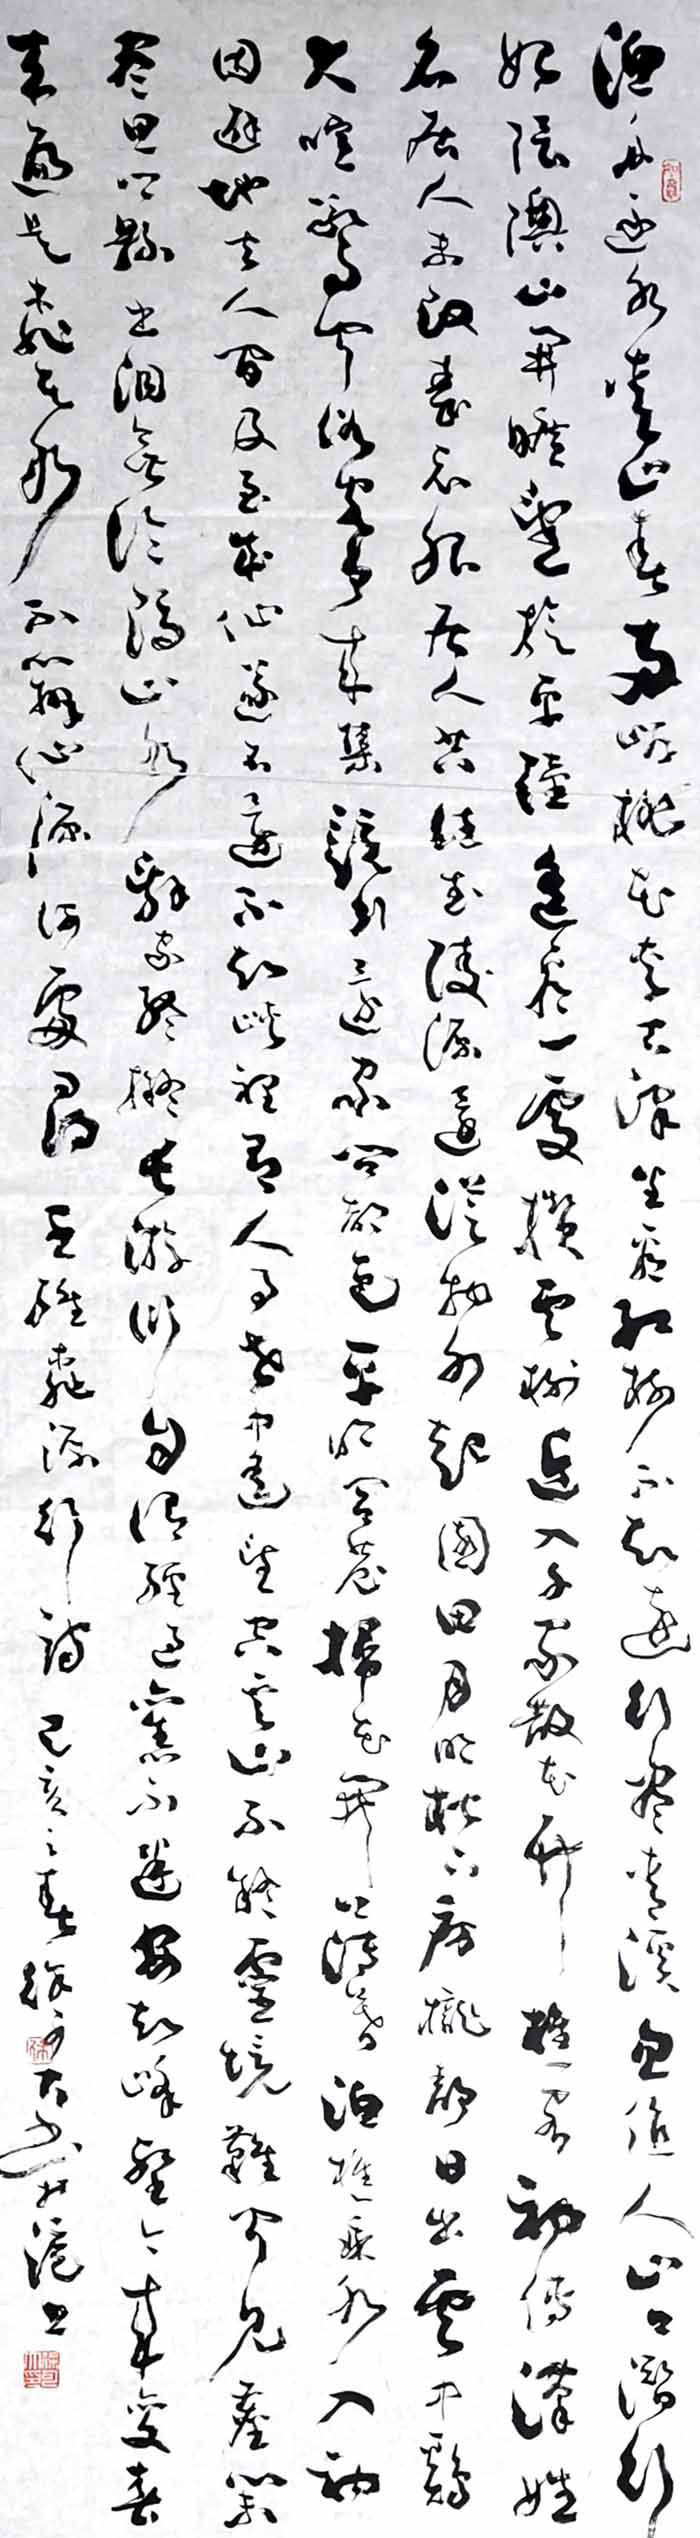 漁舟逐水愛山春兩岸桃花夾古津坐看紅樹不知遠行盡青溪忽值人山口潛行
始隈隩山開曠望旋平陸遙看一處攢雲樹近入千家散花竹樵客初傳漢姓
名居人未改秦衣服居人共住武陵源還從物外起園田月明松下房櫳靜日出雲中鷄
犬喧驚聞俗客爭來集競引還家問都邑平明閭巷掃花開薄暮漁樵乘水入初
因避地去人間及至成仙遂不還不知峽裡有人事世中遙望空雲山不疑靈境難聞見塵心未
盡思鄉縣出洞無論隔山水辭家終擬長游衍自謂經過舊不迷安知峰壑今來變春
來遍是桃花水不辨仙源何處尋王維桃源行詩己亥之春徐書於滬上